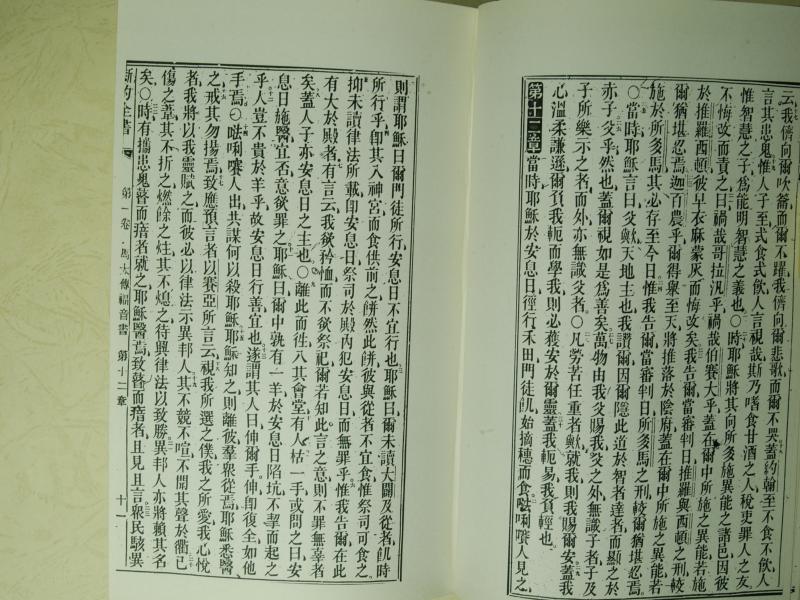 云我儕向爾吹籥而爾不躍我儕向爾悲歌而爾不哭蓋約翰至不食不飲人
言其患鬼惟人子至式食式飲人言視哉斯乃嗜食甘酒之人稅吏罪人之友
惟智慧之子爲能明智慧之義也〇時耶穌將其向所多施異能之諸邑因彼
不悔改而責之曰禍哉哥拉汎乎禍哉伯賽大乎蓋在爾中所施之異能若施
於推羅西頓彼早衣麻蒙灰而悔改矣我告爾當審判日推羅與西頓之刑較
爾猶堪忍焉迦百農乎爾得舉至天將推落於陰府蓋在爾中所施之異能若
施於所多馬其必存至今日惟我告爾當審判日所多馬之刑較爾猶堪忍焉
〇當時耶穌言曰父歟天地主也我讚爾因爾隱此道於智者達者而顯之於
赤子父乎然也蓋爾視如是爲善矣萬物由我父賜我父之外無識子者子及
子所樂示之者而外亦無識父者〇凡勞苦任重者歟就我則我賜爾安蓋我
心溫柔謙遜爾負我軛而學我則必獲安於爾靈蓋我軛易我負輕也
第十二章 當時耶穌於安息日徑行禾田門徒飢始摘穗而食𠵽唎㘔人見之
則謂耶穌曰爾門徒所行安息日不宜行也耶穌曰爾未讀大闢及從者飢時
所行乎卽其入神宮而食供前之餅然此餅彼與從者不宜食惟祭司可食之
抑未讀律法所載卽安息日祭司於殿內犯安息日而無罪乎惟我告爾在此
有大於殿者有言云我欲矜恤而不欲祭祀爾若知此言之意則不罪無辜者
矣蓋人子亦安息日之主也〇離此而徃入其會堂有人枯一手或問之曰安
息日施醫宜否意欲罪之耶穌曰爾中孰有一羊於安息日陷坑不挈而起之
乎人豈不貴於羊乎故安息日行善宜也遂謂其人曰伸爾手伸卽復全如他
手焉〇唎㘔人出共謀何以殺耶穌耶穌知之則離彼羣衆從焉耶穌悉醫
之戒其勿揚焉致應預言者以賽亞所言云視我所選之僕我之所愛我心悅
者我將以我靈賦之而彼必以律法示異邦人其不競不喧不聞其聲於衢已
傷之葦其不折之燃餘之炷其不熄之待興律法以致勝異邦人亦將賴其名
矣〇時有攜患鬼瞽而瘖者就之耶穌醫焉致瞽而瘖者且見且言衆民駭異
新約全書 第一卷 馬太傳福音書 第十二章 十一